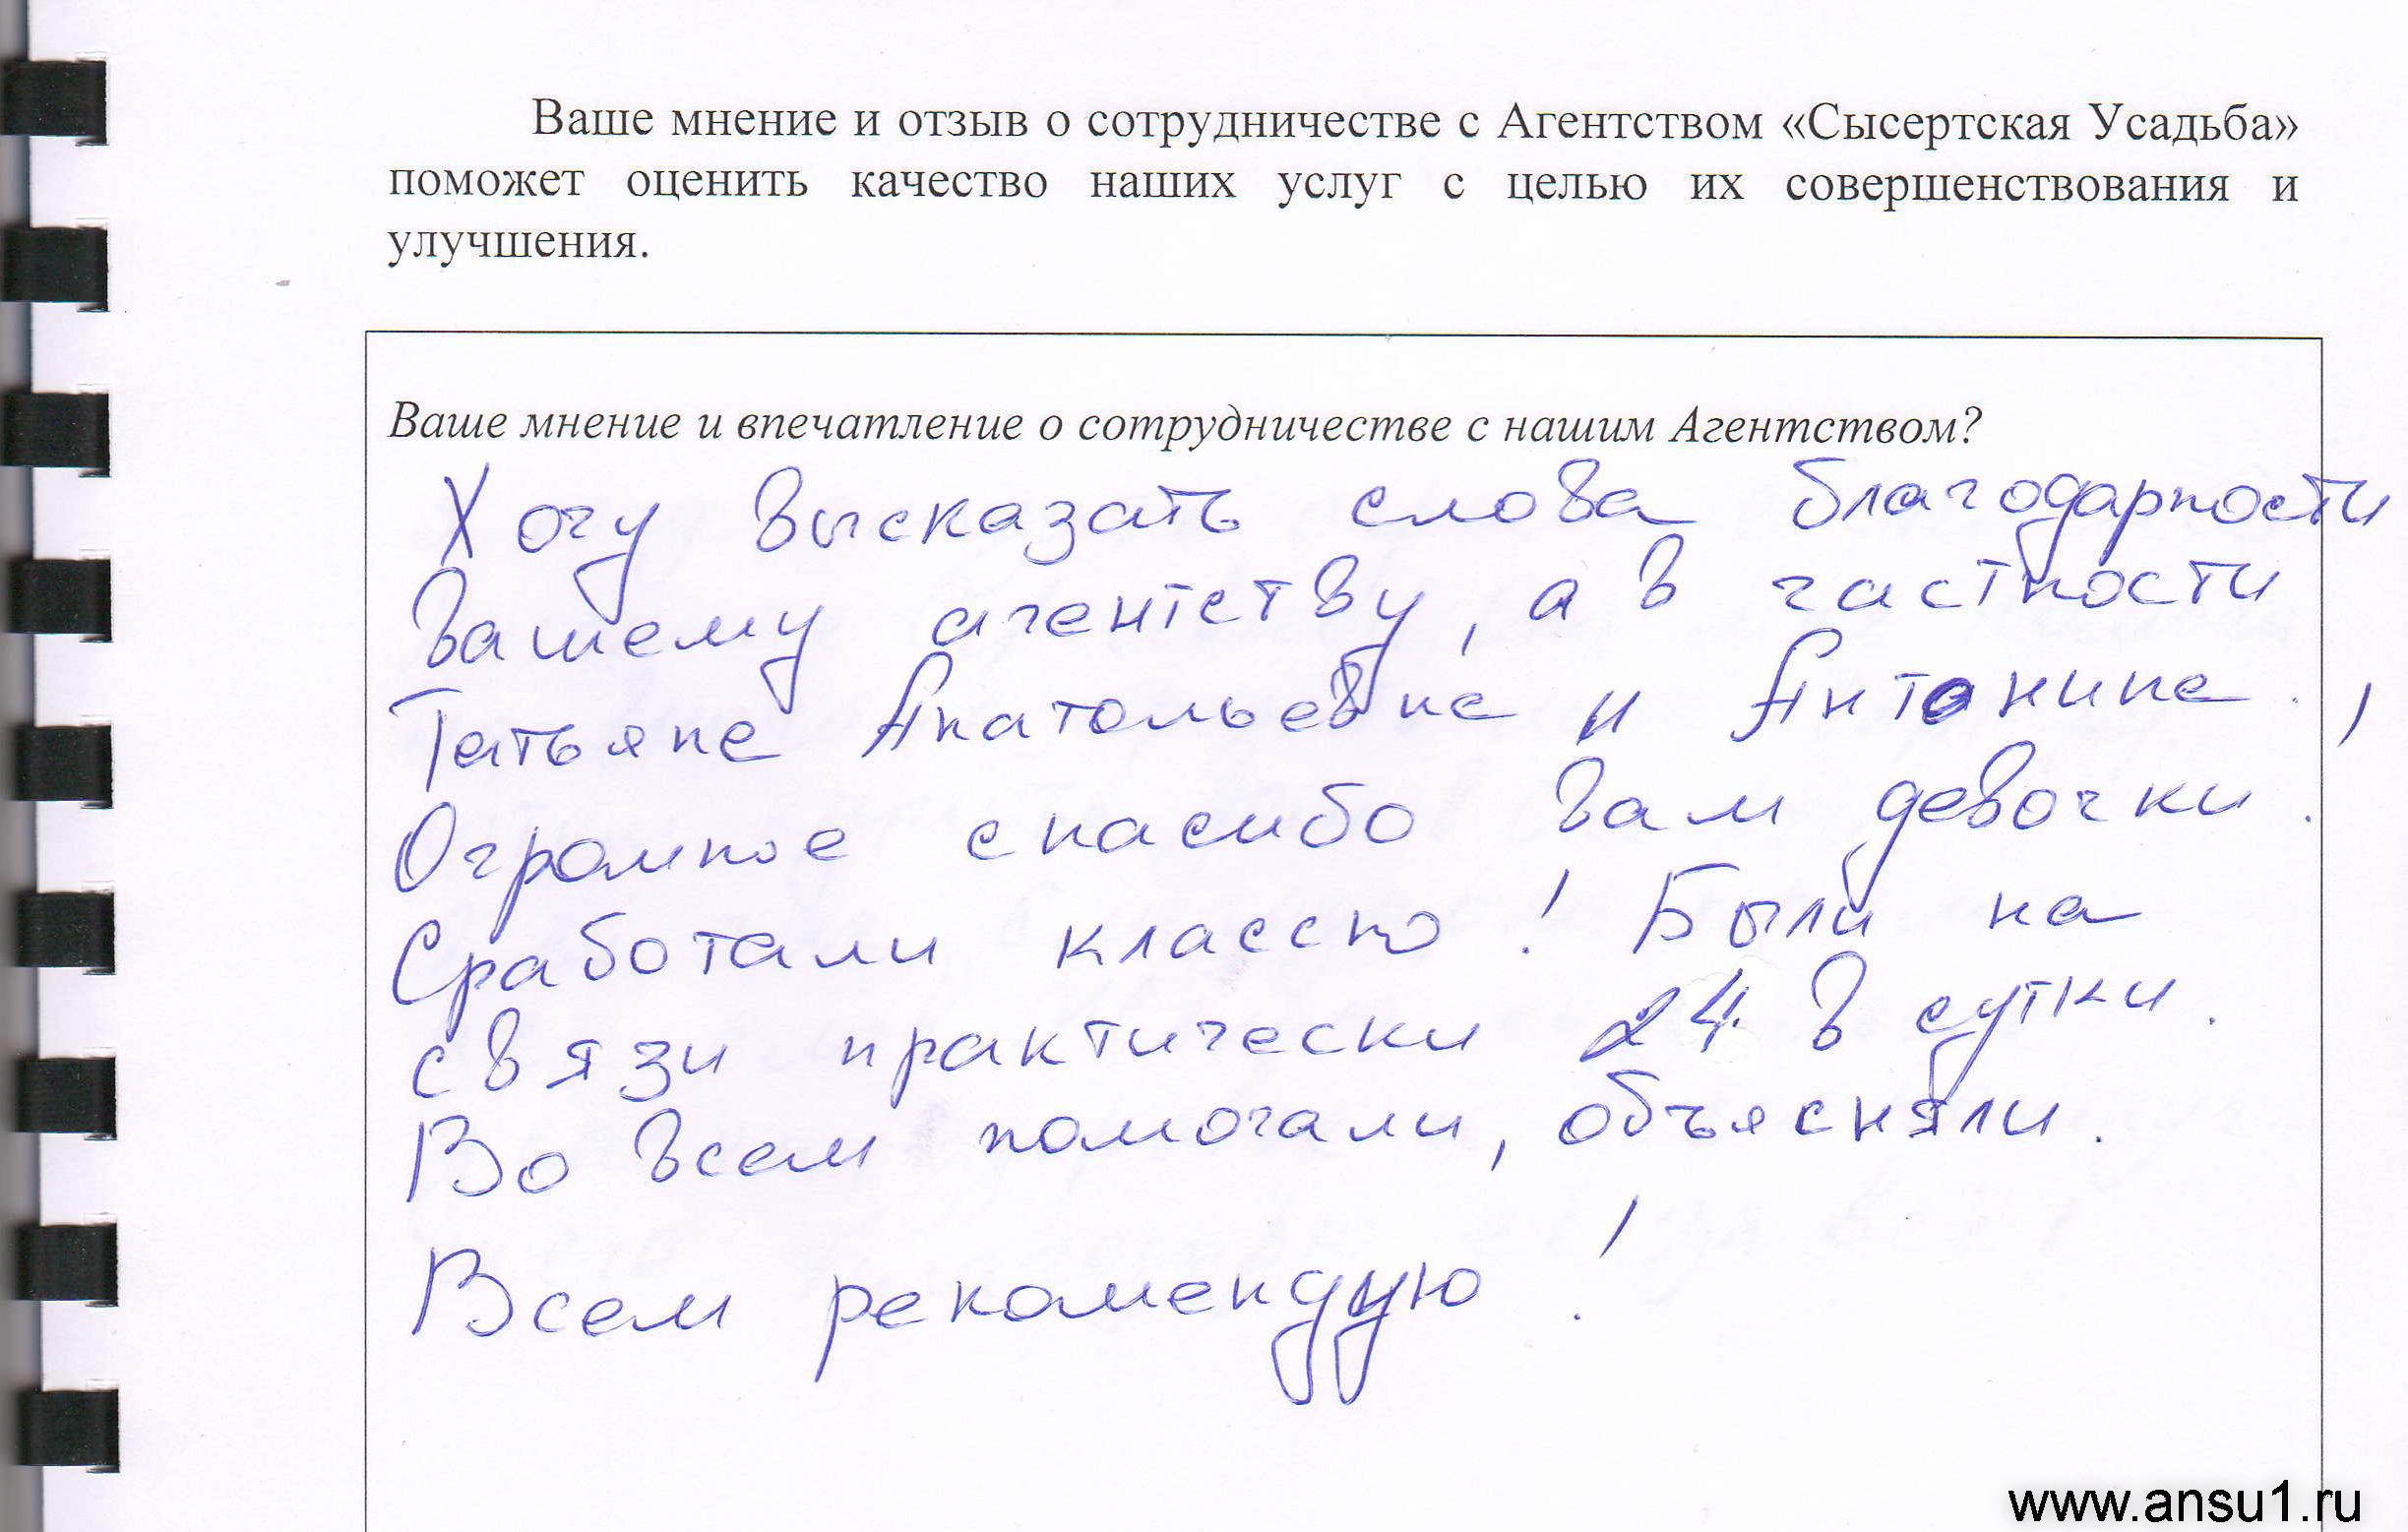 Ваше мнение и отзыв о сотрудничестве с Агентством «Сысертская Усадьба»
поможет оценить качество наших услуг с целью их совершенствования и
улучшения.
Ваше мнение и впечатление о сотрудничестве с нашим Агентством?
Хочу высказать слова благодарности
Вашему агентству, а в частности
Татьяне Анатольевне и Антонине.,
Огромное спасибо Вам девочки.
Сработали классно! Были на
связи практически 24 в сутки.
Во всем помогали, объясняли.
Всем рекомендую!
www.ansu1.ru